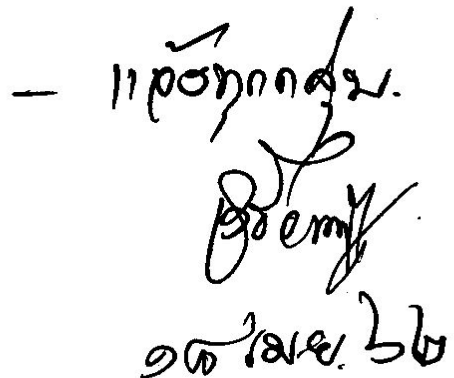 - แจ้งทุกกลุ่ม.
๑๘ เมย. ๖๒